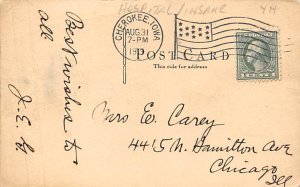 HOSPITAL/INSANE
CHEROKEE, IOWA
AUG 31
7-PM
POST CARD
This side for address
1 CENT 1
Best wishes to
all
J.E.
Mrs E. Carey
4415 N. Hamilton Ave
Chicago
Ill